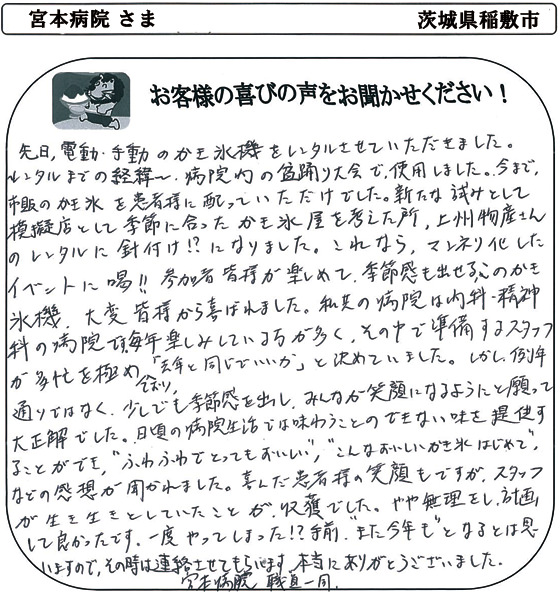 宮本病院 さま
茨城県稲敷市
お客様の喜びの声をお聞かせください！
先日、電動・手動のかき氷機をレンタルさせていただきました。
レンタルまでの経緯〜、病院内の盆踊り大会で、使用しました。今まで、
市販のかき氷を患者様に配っていただけでした。新たな試みとして
模擬店として季節に合ったかき氷屋を考えた所、上州物産さん
のレンタルに針付け!?になりました。これなら、マンネリ化した
イベントに喝!!参加者皆様が楽しめて、季節感も出せる、このかき
氷機、大変皆様から喜ばれました。私共の病院は内科・精神
科の病院です。毎年楽しみしている方が多く、その中で準備するスタッフ
が多忙を極め「去年と同じでいいか」と決めていました。しかし、例年
通りではなく、少しでも季節感を出し、みんなが笑顔になるようにと願って
大正解でした。日頃の病院生活では味わうことのできない味を提供す
ることができ、"ふわふわでとってもおいしい"、"こんなおいしいかき氷はじめて"、
などの感想が聞かれました。喜んだ患者様の笑顔もですが、スタッフ
が生き生きとしていたことが、収獲でした。やや無理をし、計画
して良かったです。一度やってしまった!?手前、"また今年も"となるとは思
いますので、その時は連絡させてもらいます。本当にありがとうございました。
宮本病院 職員一同.